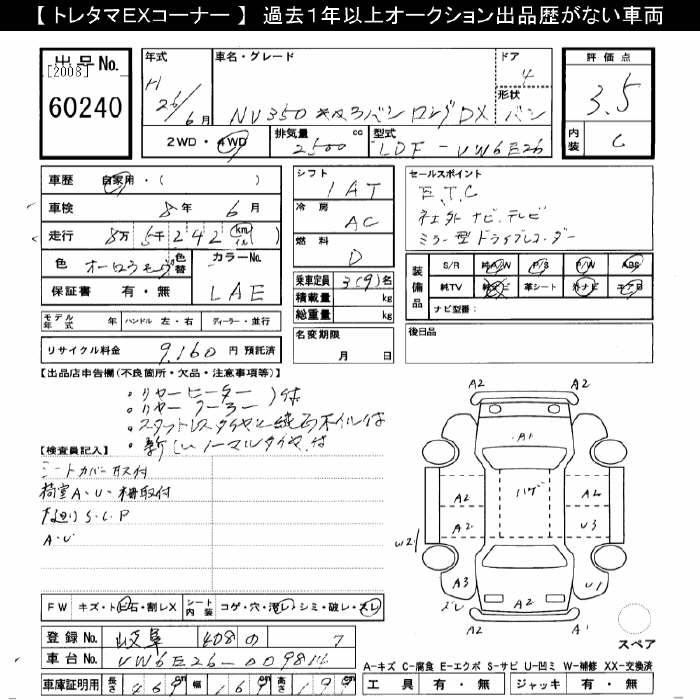 【 トレタマEXコーナー 】 過去1年以上オークション出品歴がない車両
出品No.
[2008]
60240
年式
H 26/6月
車名・グレード
NV350 キャラバン ロングDX バン
ドア
4
形状
評価点
3.5
内装
C
2WD・4WD
排気量 2500 cc
型式 LDF-VW6E26
車歴 自家用・( )
車検 8年 6月
走行 8万 5千 242 (km マイル)
色
色替
カラーNo.
LAE
保証書 有・無
シフト
IAT
冷房
AC
燃料
D
乗車定員 3(9)名
積載量 kg
総重量 kg
名変期限
月 日
セールスポイント
E.T.C
社外ナビ.テレビ
ミラー型ドライブレコーダー
装備品
S/R 純A/W P/S P/W ABS
純TV 純ナビ 革シート 外ナビ エアB
ナビ型番:
後日品
モデル年式 年 ハンドル 左・右 ディーラー・並行
リサイクル料金 9,160 円 預託済
【出品店申告欄(不良箇所・欠品・注意事項等)】
・リヤーヒーター)付
・リヤークーラー
・スタットレスタイヤと純正ホイル付
・新しいノーマルタイヤ付
【検査員記入】
シートカバー
荷室A・U・棚取付
S.C.P
A・U
FW キズ・トビ石・割レX シート内装 コゲ・穴・汚レ・シミ・破レ・スレ
登録No. 岐阜 408 の 7
車台No. VW6E26-
車庫証明用 長さ 469 幅 169 高さ 199
A2
A2
A1
ハゲ
A2
A2
A2
U3
W2
A3
U1
ズレ
A1
A2
A2
スペア
A-キズ C-腐食 E-エクボ S-サビ U-凹ミ W-補修 XX-交換済
工具 有・無 ジャッキ 有・無